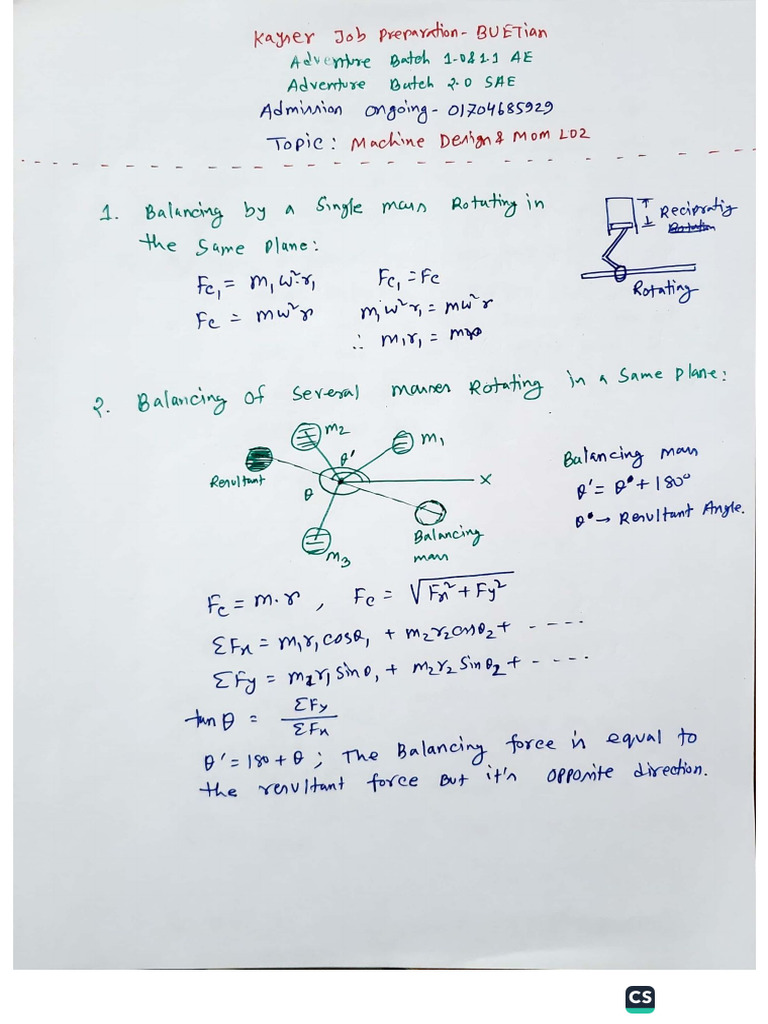 Kayser Job Preparation - BUETian
Adventure Batch 1.0 & 1.1 AE
Adventure Batch 2.0 SAE
Admission ongoing - 01704685929
Topic: Machine Design & Mom L02
1. Balancing by a single mass Rotating in
the same plane:
Reciprocatig
Rotating
Fc₁ = m₁ω²r₁ Fc₁ = Fc
Fc = mω²r m₁ω²r₁ = mω²r
∴ m₁r₁ = mr
2. Balancing of several masses Rotating in a same plane:
m₂
m₁
θ'
Resultant
θ
x
m₃
Balancing
mass
Balancing mass
θ' = θ° + 180°
θ° → Resultant Angle.
Fc = m.r , Fc = √Fx² + Fy²
ΣFx = m₁r₁cosθ₁ + m₂r₂cosθ₂ + -----
ΣFy = m₁r₁sinθ₁ + m₂r₂sinθ₂ + -----
tanθ = ΣFy / ΣFx
θ' = 180 + θ ; The Balancing force is equal to
the resultant force but it's opposite direction.
CS